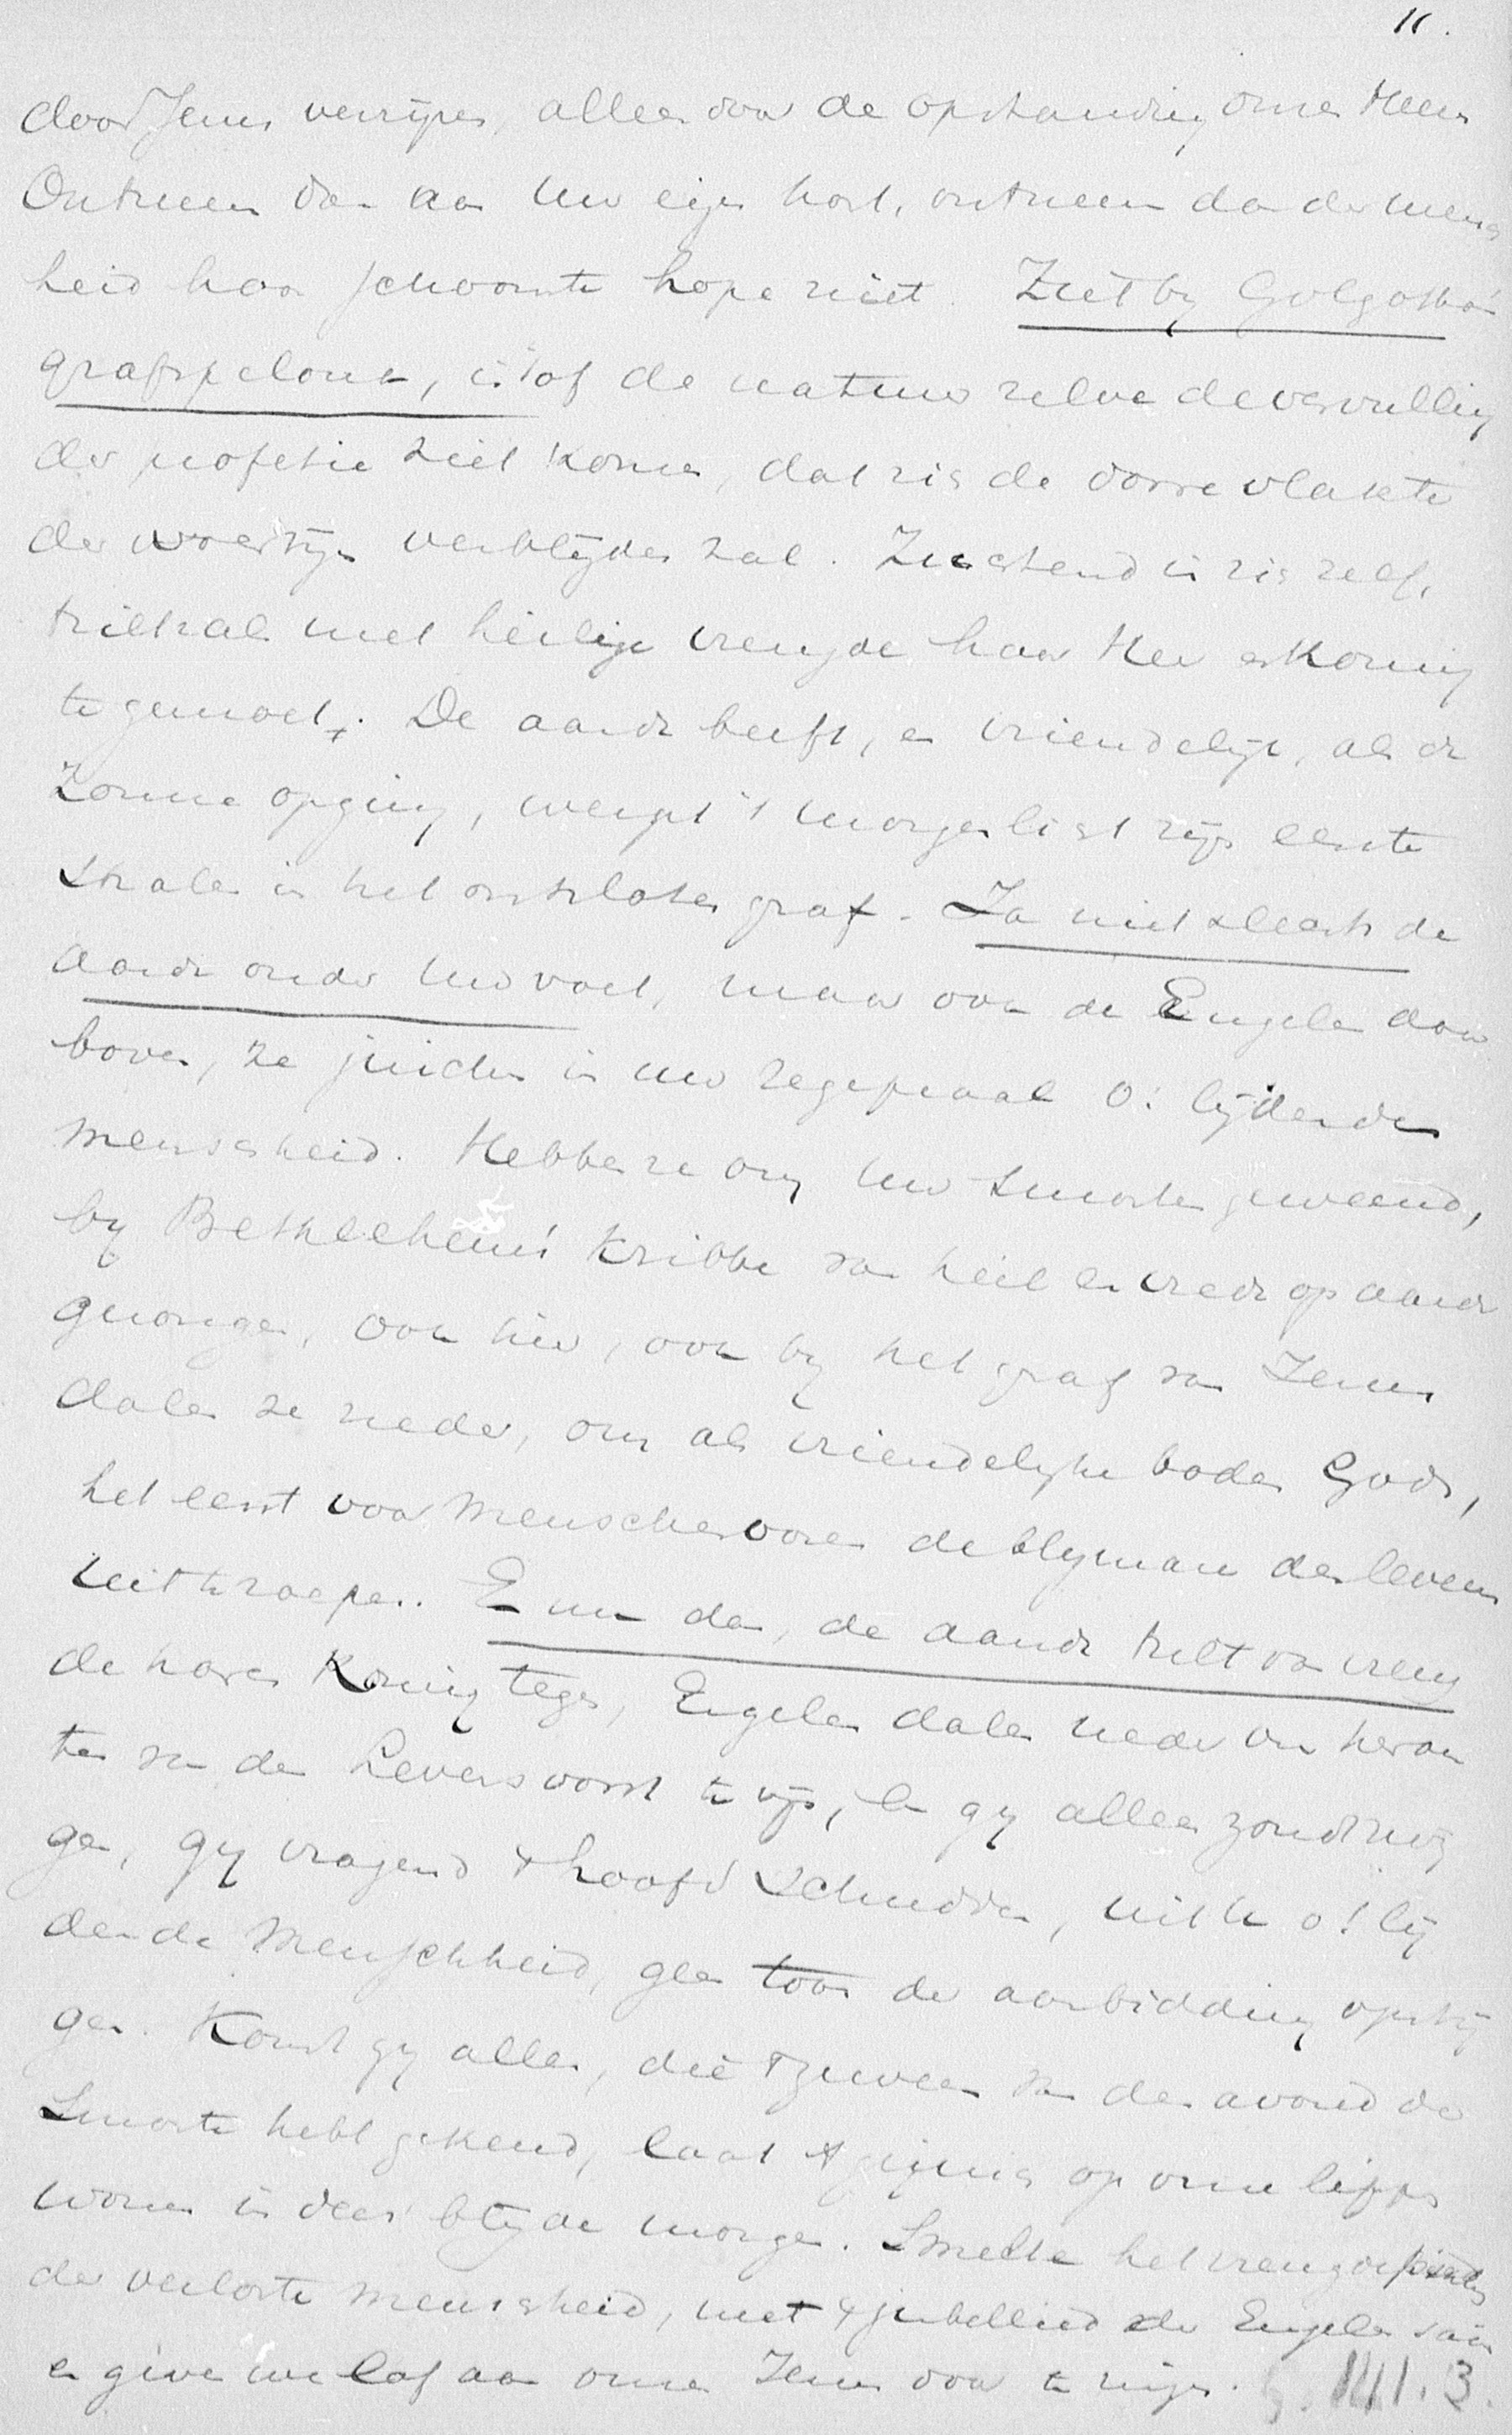 11.
door Jezus verrijzen, alleen door de opstanding onzes Heeren
Ontneem dan aan uw eigen hart, ontneem dan der mensch
heid haar schoonste hope niet. Ziet by Golgotha's
grafspelonk, is 't of de natuur zelve de vervulling
der profetie ziet komen, dat zich de dorre vlakte
der woestijn verblijden zal. Zuchtend in zich zelf,
trilt zal met heilige vreugde haar Heer en Koning
te gemoet. De aarde beeft, en vriendelijk, als de
Zonne opging, werpt 't morgenlicht zijn eerste
stralen in het ontsloten graf. Ja niet slechts de
aarde onder uw voet, maar ook de Engelen daar
boven, ze juichen in uw zegepraal o! lijdende
menschheid. Hebben ze om uw smarte geweend,
by Bethlehem's kribbe van heil en vrede op aarde
gezongen, ook hier, ook by het graf van Jezus
dalen ze neder, om als vriendelyke boden Gods,
het eerst voor menschenooren de blymare des levens
uit te roepen. En nu dan, de aarde trilt van vreug
de haren Koning tegen, Engelen dalen neder om herau
ten van den Levensvorst te zijn, en gy alleen zoudt zwij
gen, gy vragend 't hoofd schudden, uit u o! lij
dende Menschheid, geen toon der aanbidding opstij
gen. Komt gy allen, die 't geween van den avond der
Smarte hebt gekend, laat 't gejuich op onze lippen
wonen in deez' blijde morgen. Smelte het vreugde
der verloste menschheid, met 't jubellied der Engelen saam
en give we lof aan onzen Jezus door te zingen. G. 141.3.